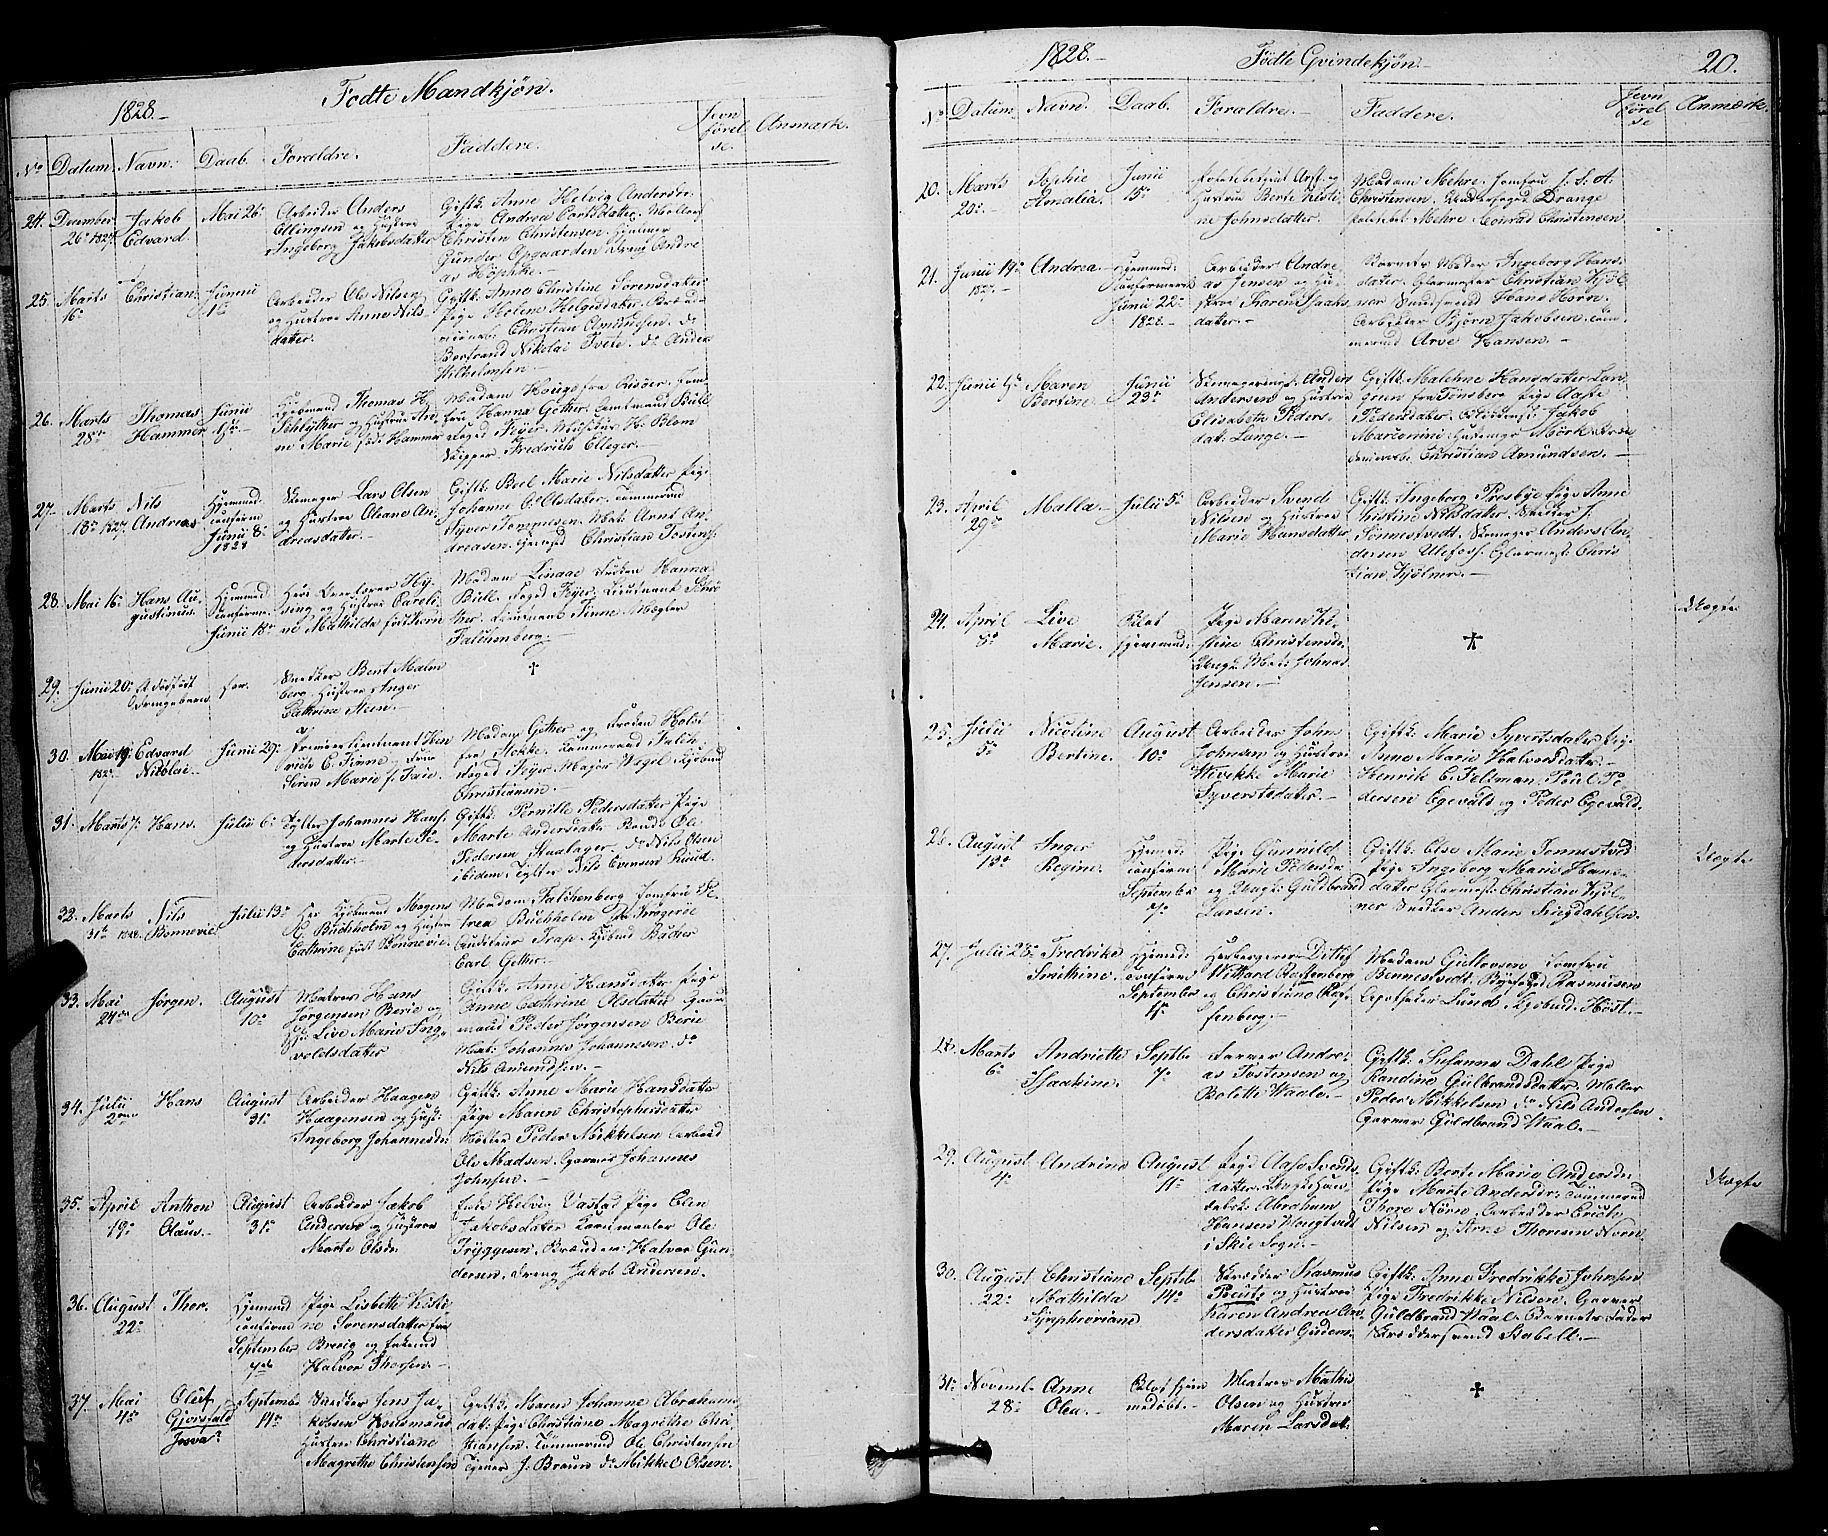 1828.-
Födte Mandkjön.
No Datum Navn. Daab. Foraldre. Faddere. Jevn förel se. Anmærk.
24. December 26de 1827. Jakob Edvard. Mai 26de
Arbeider Anders
Ellingsen og Hustrue
Ingeborg Jakobsdatter
Gift: Anne Helvig Anders
Pige Andrea Carlsdatter.
Christen Christensen.
Gunder Opgaarden Dreng Andre
as Höphke.-
25. Marts 16de Christian. Junii 1te
Arbeider Ole Nilsen
og Hustrue Anne Nils
datter.
Gift: Anne Christine Sörensdatter
Pige Helene Helgesdatter.
Christian Amundsen. do
Bertrand Nikolai Tvete. do Anders
Vilhelmsen.-
26. Marts 28de Thomas Hammer Junii
Kjøbmand Thomas H.
Schlytter og Hustrue An
ne Marie föd Hammer
Madam Houge fra Risöer. Jom
frue Hanna Gether. Amtmand Bull
Foged Feyer. H. Blom
Skipper Fredrich Elleger.-
27. Marts 18de 1827. Nils Andreas Hjemmed: confirm Junii 8de 1828
Skomager Lars Olsen
og Hustrue Oleane An
dreasdatter.-
Gift: Boel Marie Nilsdatter Pige
Johanne O. Olsdatter. Tømmermd
Syver Mat: Arnt An
dreasen. Christian Tostens:
28. Mai 16de Hans Augustinus. Hjemmed confirm. Junii 18de
Herr
og Hustrue Careli
ne Mathilde född Horn
Madam Linaae Fröken Hanna
Bull. Foged Feyer. Lieutnant
ther. Lieutnant Finne. Mægler
Falchenberg.-
29. Junii 20de Et dödfödt Drengebarn for.
Snedker Bent Malm
berg. Hustrue Inger
Cathrine Steen.-
†
30. Mai 19de 1827 Edvard Nikolai.- Junii 29de
Premierlieutnant Hen
rich C. Finne og Frue
Siren Marie f. Paie.
Madam Gether og Fröken Holst
fra Kammerraad Falch.
Foged Feyer Major Vogel Kjöbmd
Christiansen.-
31. Marts Hans. Julii 6te
Tylter Johannes Hans:
og Hustrue Marte Pe
dersdatter.-
Gift: Pernille Pedersdatter Pige
Marte Andersdatter Bonde Ole
Pedersen Stualager. do Nils Olsen
ibidem. Tylter Nils Evensen Lund.
32. Marts 31te 1828. Nils Bonnevie. Julii 13de
Her Kjöbmand Mogens
A. Buchholm og Hustrue
Cathrine född Bonnevie.
Madam Falchenberg Jomfrue Pe
trea Buchholm fra Kragerøe
Auditeur Trap. Kjöbmd Backer
Carl Gether.-
33. Mai 24de Jörgen. August 10de
Matros Hans
Jörgensen Berie og
H: Live Marie Ing
voldsdatter
Gift: Anne Hansdatter Pige
Anne Cathrine Olsdatter Gaar
mand Peder Jörgensen Berie
Mat: Johannes Johannesen do
Nils Amundsen.-
34. Julii 2den Hans August 31te
Arbeider Haagen
Haagensen og Hust:
Ingeborg Johannesd:
Gift: Anne Marie Hansdatter
Pige Maren Christophersdatter
Möller Peder Mikkelsen Arbeid
Ole Madsen. Garver Johannes
Johnsen.-
35. April 19de Anthon Olaus.- August 31te
Arbeider Jakob
Andersen og Hustrue
Marte Olsdr:
Enke Helvig Vastad Pige Elen
Jakobsdatter Kartemaler Ole
Tryggesen. Brænder Halvor Gun
dersen. Dreng Jakob Andersen.
36. August 22de Thor. Hjemmed confirm September 7de
Pige Lisbeth Kisti
ne Sörensdatter fra
Brevig og Enkemd
Halvor Thorsen.-
37. Mai 4de Oluf Gjorsfald September 14de
Snedker Jens Ja
kobsen
Hustrue Christiane
Magrethe Christensen
Gift: Maren Johanne Abrahams
dat: Pige Christiane Magrethe Chri
stiansen. Tömmermd Ole Christensen
Tjener J. Braun do Mikkel Olsen.
1828.-
Födte Qvindekjön.-
20.
No Datum. Navn. Daab. Foraldre.- Faddere. Jevn förel se Anmærk.
20. Marts 20de.- Sophie Amalia. Junii 15de
Politebetient Arft. og
Hustrue Berte Kisti
ne Johnsdatter.
Madam Mehre. Jomfrue J. S. A.
Christensen. Underfoged Drange
Politibet Mehre. Conrad Christensen
21. Junii 19de 1827.- Andrea.- Hjemmed: confirmeret Junii 22de 1828.-
Arbeider Andre
as Jensen og Hu
strue Karen Isaaks
datter.-
Barnets Moder Ingeborg Hans
datter. Glarmester Christian Kjöl
ner Hans Horn.
Arbeider Björn Jakobsen. Tøm
mermd Arve Hansen.-
22. Junii 4de Maren Bertine. Junii 23de
Skomagersvend Anders
Andersen og Hustrue
Elisabeth Peders
dat: Lange.-
Gift: Malehne Hansdatter Lan
green fra Tönsberg Pige Aase
Pedersdatter. Jakob
Marconini. Mörk.
Christian Amundsen.-
23. April 29de Malla.- Julii 5te
Arbeider Svend
Nilsen og Hustrue
Marie Hansdatter
Gift: Ingeborg Presbye Pige Anne
Kistine Nilsdatter. Snedker J.
Sönnestvedt. Skomager Anders An
dersen Ulefos. Glarmest: Chris
tian Kjölner.-
24. April 8de Live Marie. Blev hjemmed:
Pige Maren Ki
stine Christensd:
Ungk: Mat: Johnas
Jensen.-
†
Uægte
25. Julii 5te Nicoline Bertine. August 10de
Arbeider John
Johnsen og Hustrue
Wivekke Marie
Syvertsdatter.-
Gift: Marie Syvertsdatter Pige
Anne Marie Halvorsdatter.-
Henrik C. Feldman. Poul Pe
dersen Egevald og Peder Egevald.
26. August 13de Inger Regine. Hjemmed: confirm. September 7de
Pige Gunnild
Marie Pedersdr
og Ungk: Guldbrand
Larsen.
Gift: Else Marie Sonnestved
Pige Ingeborg Marie Hans
datter Glarmest: Christian Kjöl
ner Snedker Anders Ingdahlsen.
Uægte
27. Julii 23de Fredrike Smithine. Hjemmed: confirm September 11te
Herbergerer Ditlef
Withard Raffenberg
og Christiane Raf
fenberg.-
Madam Gustavsen Jomfrue
Bennestvedt. Byefoged Rasmusen
Apotheker Lund. Kjöbmd. Höst.-
28. Marts 6te Andriette Isaakine. Septbr 7de
Farver Andre
as Tostensen og
Bolette Waale.-
Gift: Susanna Dahl Pige
Randine Guldbrandsdatter. Möller
Peder Mikkelsen. do Nils Andersen
Garver Guldbrand Waal.-
29. August 4de Andrine August 11te
Pige Aase Svends
datter. Ungk:
Abraham
Hansen
i Skie Sogn.-
Gift: Berte Marie Andersdr:
Pige Marte Andersdr: Tömmermd
Thore Norn. Arbeider Erich
Nilsen og Arne Thoresen Norn
Uægte
30. August 22de Christiane Mathilda Symphroriane Septbr 14de
Skrædder Rasmus
Poust og Hustrue
Karen Andrea An
dersdatter Guders
Gift: Anne Fredrikke Johnsen
Pige Fredrikke Nilsen. Garver
Guldbrand Waal. Barnets Fader
Skræddersvend Stabell.-
31. Novemb: 28de Anne Olea.- Blev hjem medöbt.-
Matros Mathis
Olsen og Hustrue
Maren Larsdat.
†